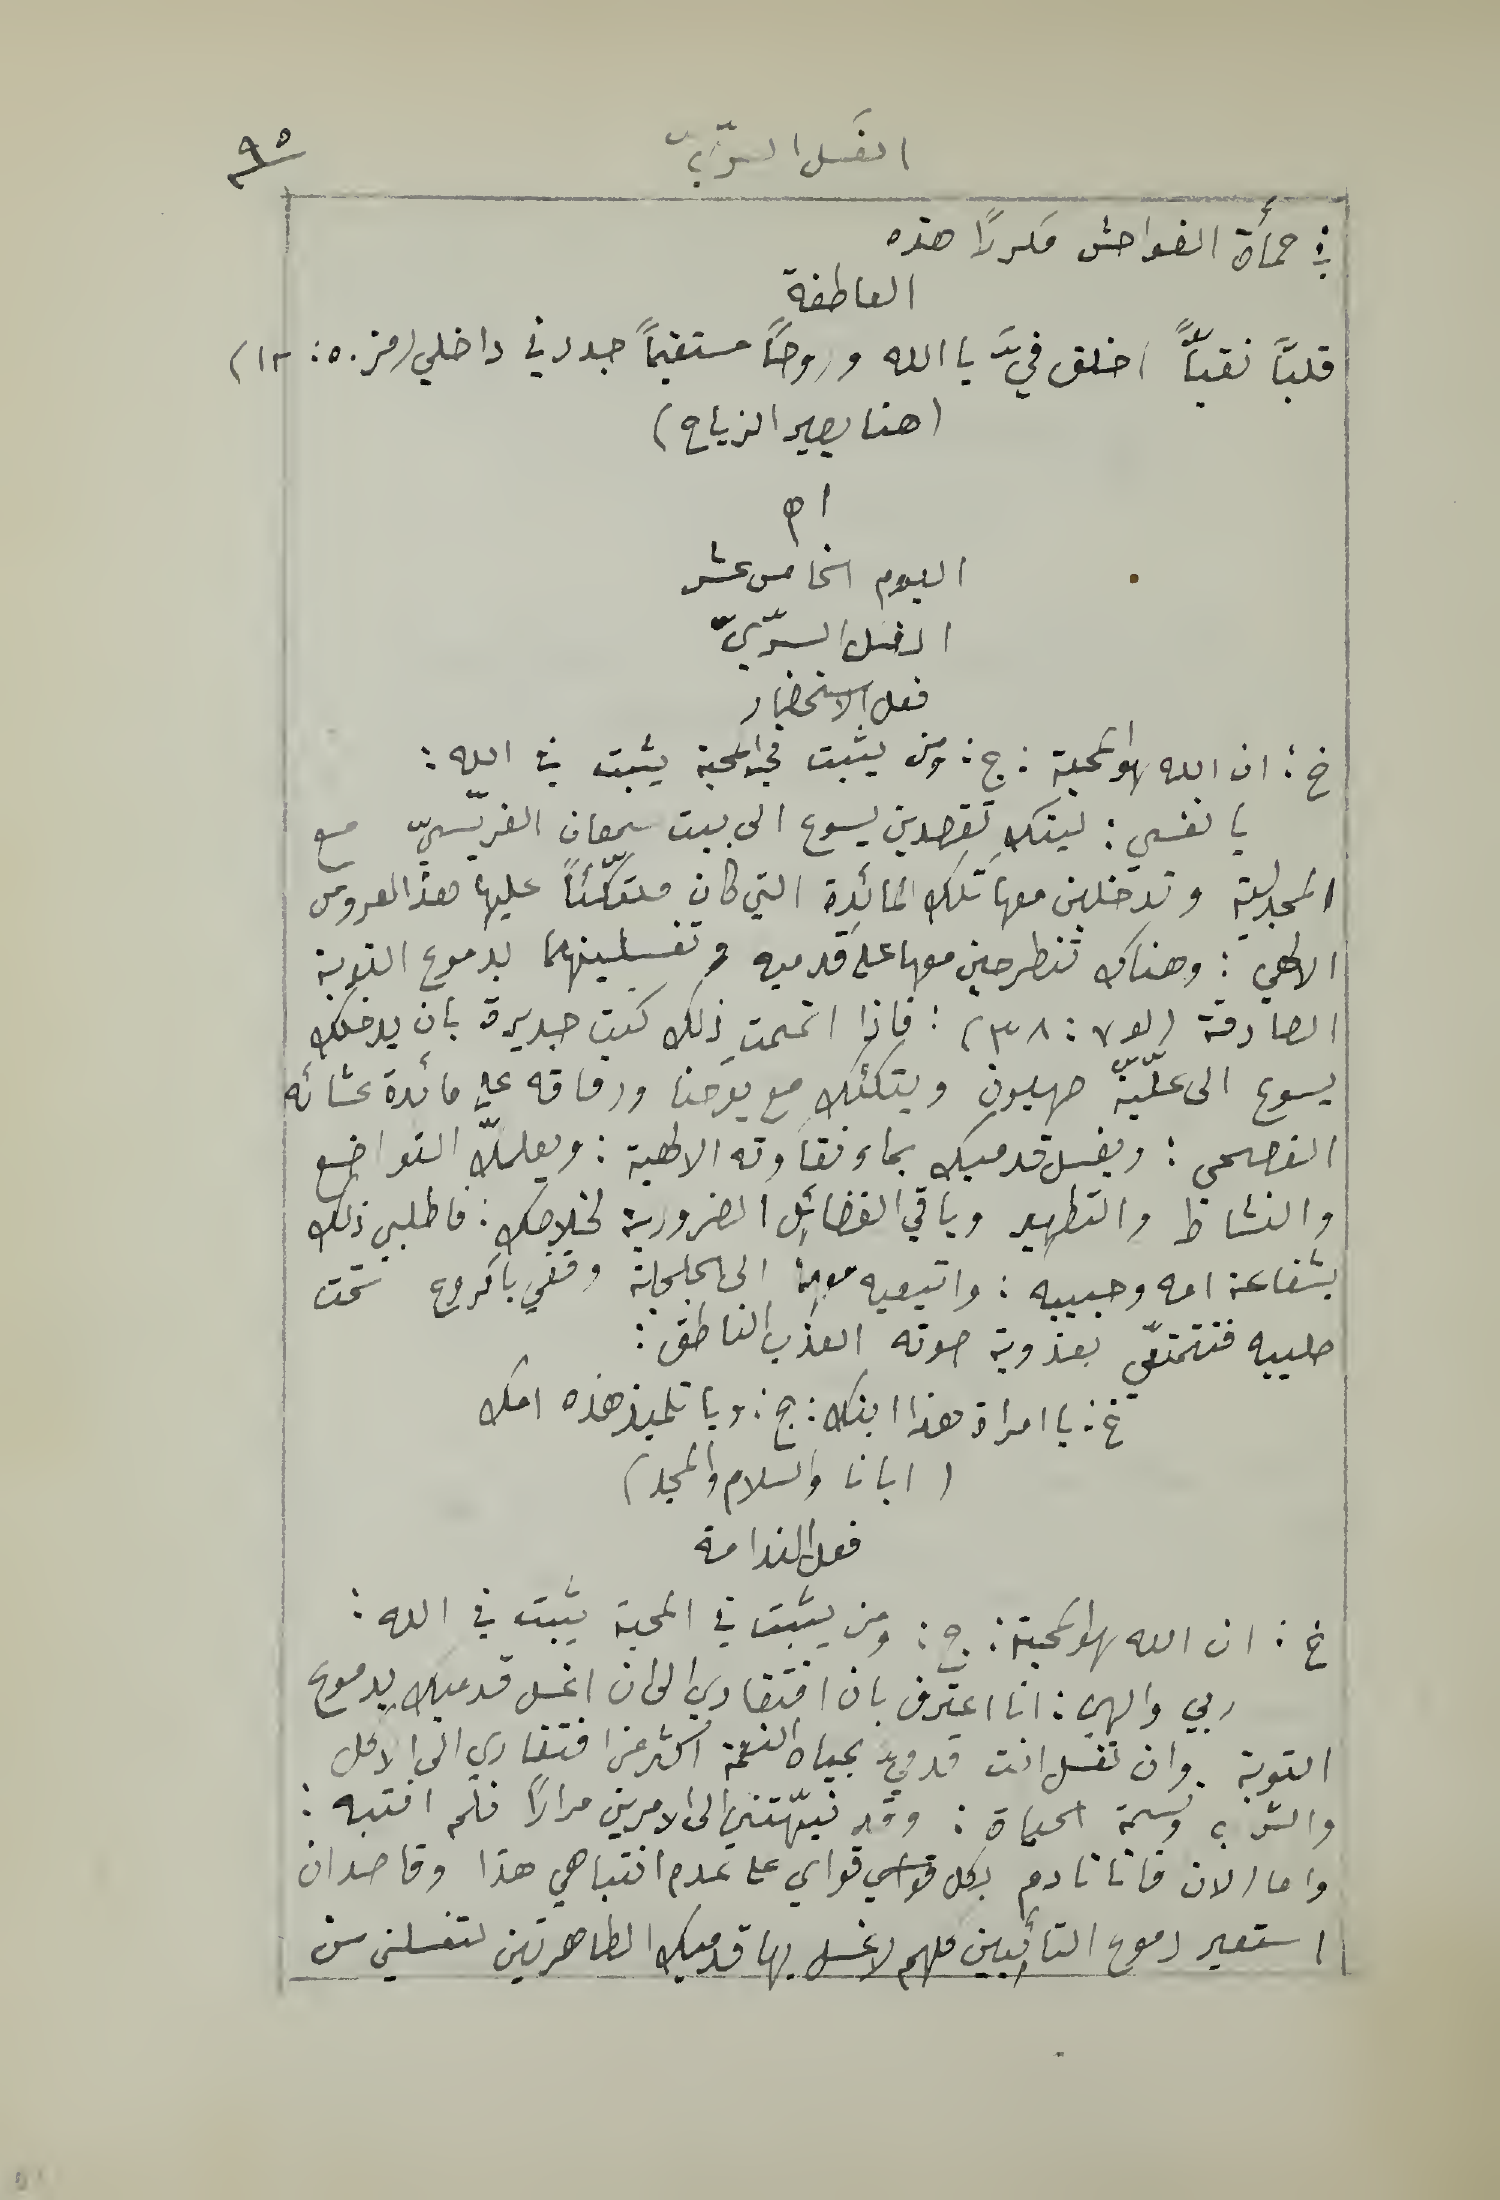 الغَسل السرّيّ
٩٥
في حمأة الفواحش مكررًا هذه
العاطفة
قلبًا نقيًّا اخلق فيَّ يا الله وروحًا مستقيمًا جدد في داخلي (مز ٥٠: ١٢)
(هنا يصير الزياح)
اه
اليوم الخامس عشر
الغسل السرّيّ
فعل الاستحضار
خ: ان الله هو المحبة: ج: ومن يثبت في المحبة يثبت في الله:
يا نفسي: ليتكِ تقصدين يسوع الى بيت سمعان الفرّيسيّ مع
المجدلية وتدخلين معها تلك المائدة التي كان متّكئًا عليها هذا العروس
الالهي: وهناك تنطرحين معها على قدميه وتغسلينهما بدموع التوبة
الصادقة (لو ٧: ٣٨): فاذا اتممتِ ذلك كنتِ جديرة بان يدخلك
يسوع الى علّيّة صهيون ويتكئك مع يوحنا ورفاقه على مائدة عشائه
الفصحي: ويغسل قدميك بماء نقاوته الالهية: ويعلمكِ التواضع
والنشاط والتطهير وباقي الفضائل الضرورية لخلاصك: فاطلبي ذلك
بشفاعة امه وحبيبه: واتبعيه معهما الى الجلجلة وقفي باكروع تحت
صليبه فتتمتعي بعذوبة صوته العذب الناطق:
خ: يا امراة هذا ابنك: ج: ويا تلميذ هذه امك
(ابانا والسلام والمجد)
فعل الندامة
خ: ان الله هو المحبة: ج: ومن يثبت في المحبة يثبت في الله:
ربي والهي: انا اعترف بان افتقاري الى ان اغسل قدميك بدموع
التوبة وان تغسل انت قدميّ بمياه النعمة اكثر من افتقاري الى الاكل
والشرب ونسمة الحياة: وقد نبّهتني الى الامرين مرارًا فلم انتبه:
واما الان فانا نادم بكل قواي على عدم انتباهي هذا وقاصد ان
استعير دموع التائبين كلهم لاغسل بها قدميك الطاهرتين لتغسلني من